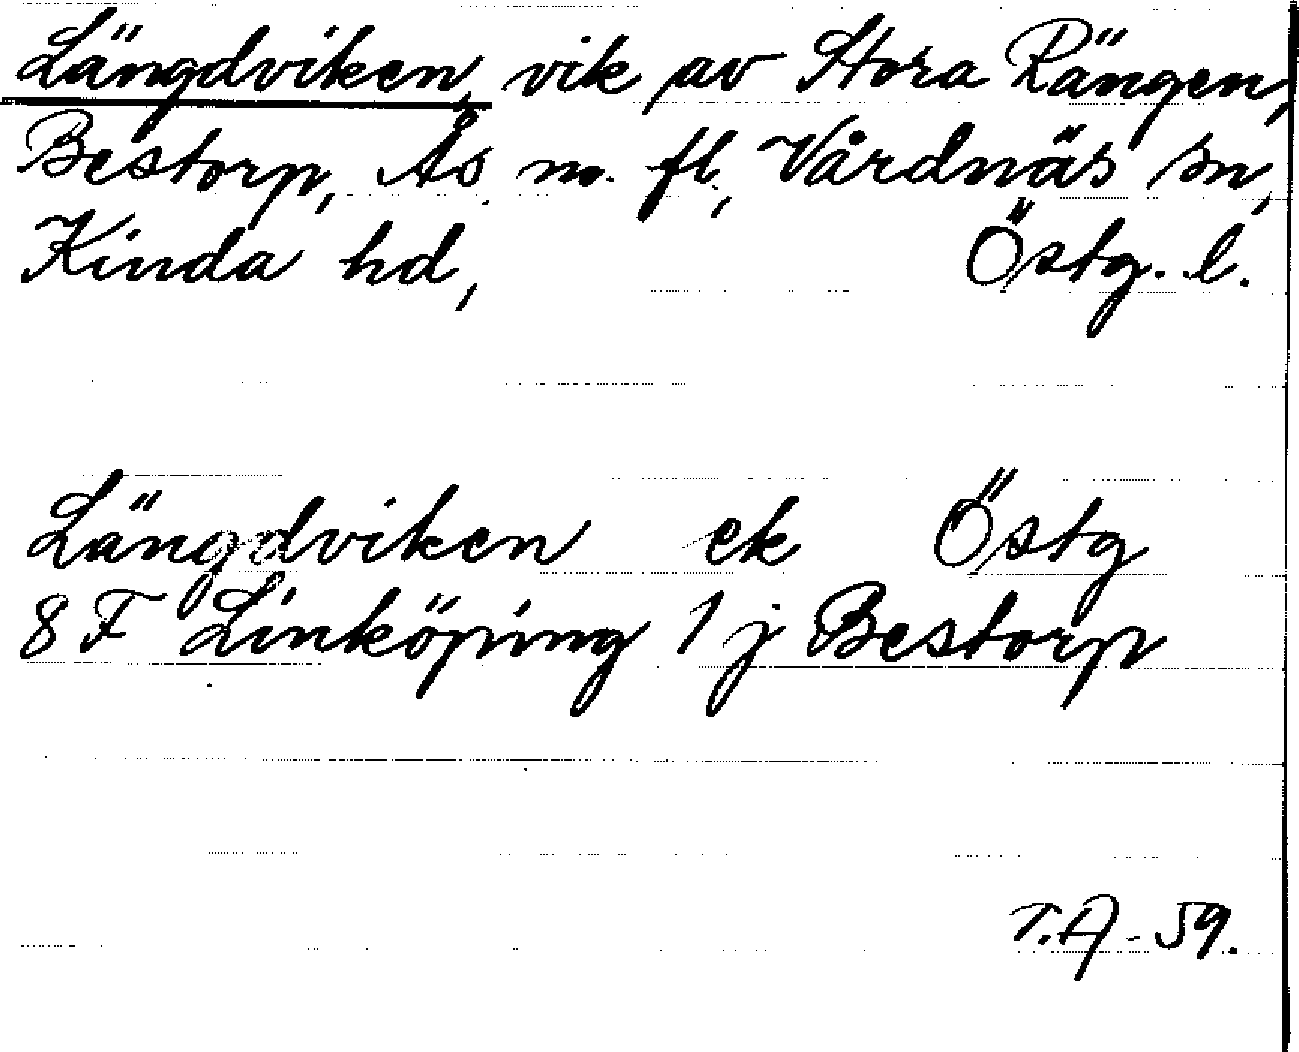 Längdviken, vik av Stora Rängen,
Bestorp, Ås m. fl., Vårdnäs sn,
Kinda hd, Östg. l.
Längdviken ek Östg
8 F Linköping 1 j Bestorp
T.A - 59.